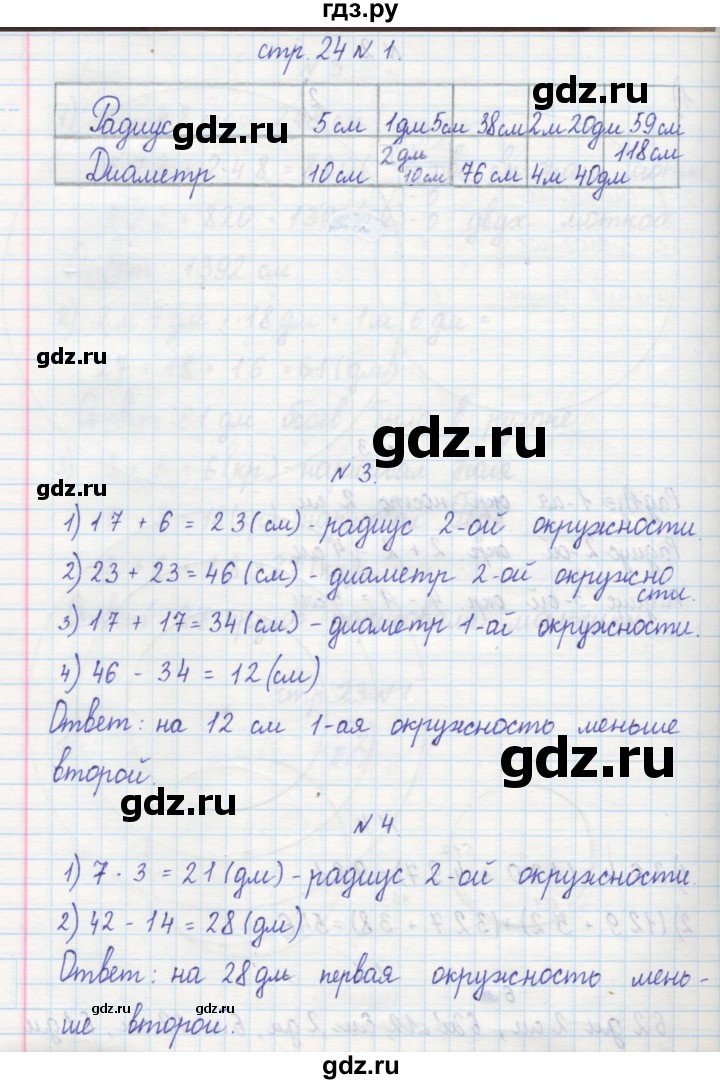 гдз.ру
стр. 24 № 1.
Радиус 5 см 1 дм 5 см 38 см 2 м 20 дм 59 см
Диаметр 10 см 2 дм 10 см 76 см 4 м 40 дм 118 см
gdz.ru
gdz.ru
gdz.ru
gdz.ru
gdz.ru
№ 3.
1) 17 + 6 = 23 (см) - радиус 2-ой окружности.
2) 23 + 23 = 46 (см) - диаметр 2-ой окружно
сти.
3) 17 + 17 = 34 (см) - диаметр 1-ой окружности.
4) 46 - 34 = 12 (см)
Ответ: на 12 см 1-ая окружность меньше
gdz.ru
второй.
gdz.ru
№ 4.
gdz.ru
1) 7 · 3 = 21 (дм) - радиус 2-ой окружности.
2) 42 - 14 = 28 (дм)
Ответ: на 28 дм первая окружность мень-
gdz.ru
gdz.ru
ше второй.
gdz.ru